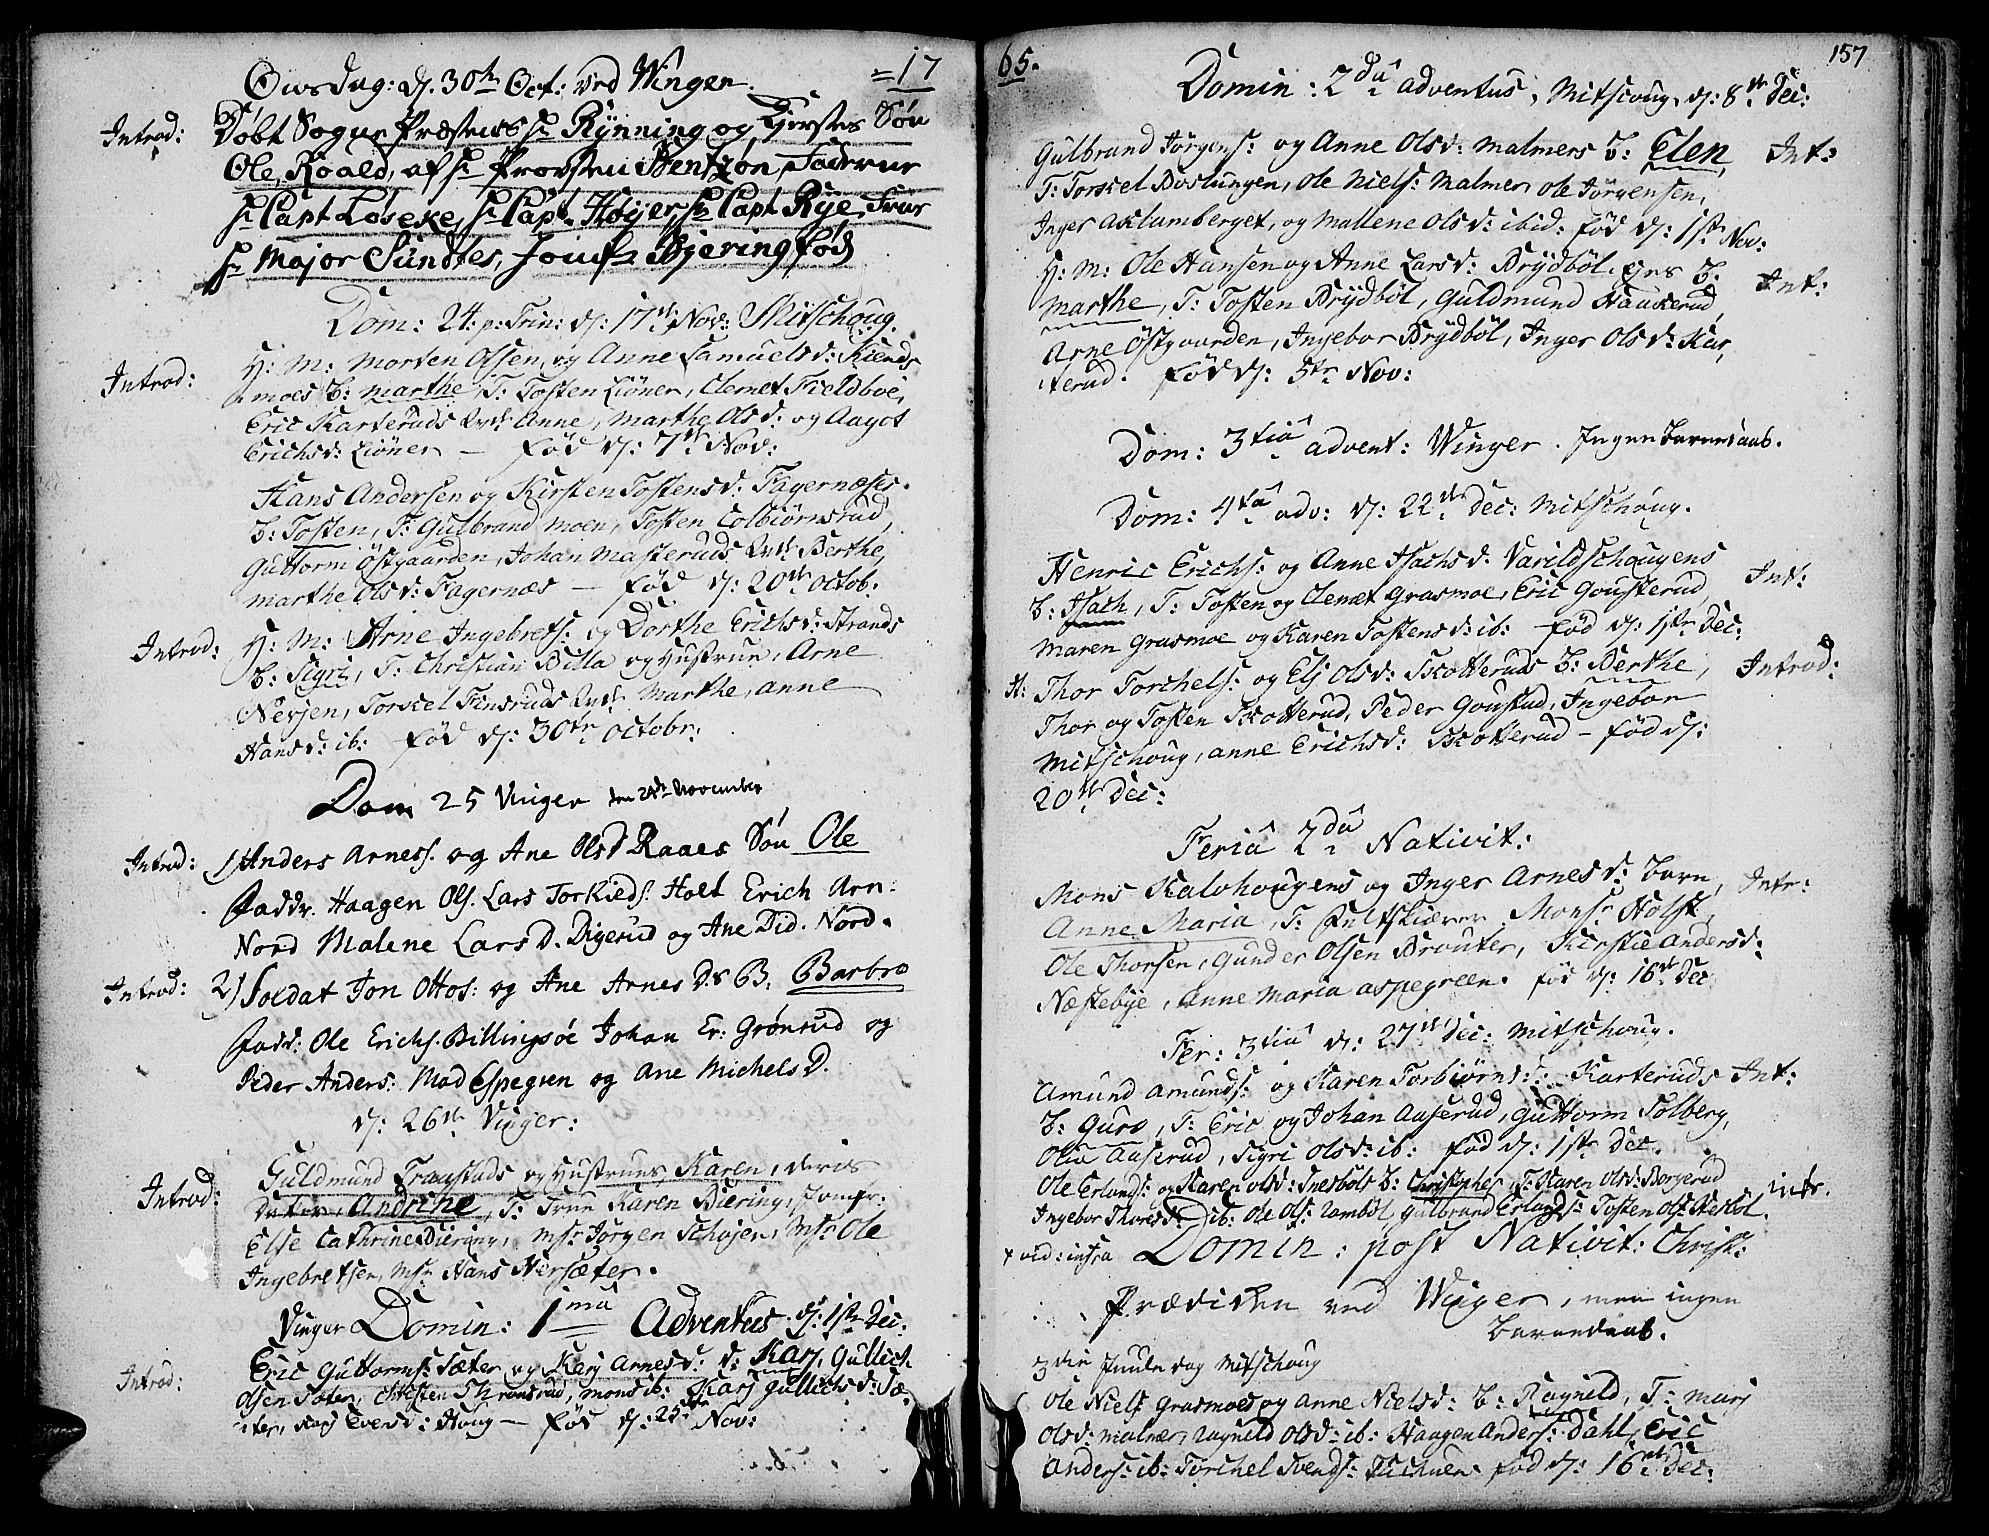 Onsdag: d. 30th Oct: ved Winger. =17
Introd: Døbt Sogne Præstens Hr Rynning og Kierstes Søn
Ole, Roald, af Hr Provsten Bentzon, Fadderne
Hr Capt Løseke, Hr Capt. Høyer, Hr Capt Rye, Frue
Hr Major Sundtes, Jomfr Bjering født
Dom: 24. p: Trin: d: 17de Nov: Mitschoug.
Introd: H: M: Morten Olsen, og Anne Samuelsd: Kiends
moes B: Marthe, T: Tosten Liöner, Clemet Fieldboe,
Eric Karteruds Qvi: Anne, Marthe Olsd: og Aagot
Erichsd: Liöner — fød d: 7de Nov:
Hans Andersen og Kirsten Tostensd: Fagernæses.
B: Tosten, T: Gulbrand moen, Tosten Colbiörnsrud,
Guttorm Östgaarden, Johan Masteruds Qvi: Berthe,
Marthe Olsd: Fagernæs — fød d: 20de octob.
Introd: H: M: Arne Ingebrets: og Dorthe Erichsd: Strands
B: Sigri, T: Christian Billa og Hustrue, Arne
Nersen, Torkel Finsruds Qvi: Marthe, anne
Hansd: ib: fød d: 30te octobr:
Dom 25 Vinger den 24de November
Introd: 1) Anders Arnes. og Ane OlsD Raaes Søn Ole
Faddr. Haagen Ols. Lars Torkieds. Holt Erich Arn:
Nord Malene Lars D. Digerud og Ane Did. Nord.
Introd: 2) Soldat Jon Ottos: og Ane Arnes Ds B. Barbro
Fadd: Ole Erichs. Billingsøe Johan Er: Grönrud og
Peder Anders: Mad Espegren og Ane Michels D.
d: 26de Vinger:
Introd: Guldmund Fraugstads og Hustrues, Karen, deres
Datter, Andrine, T: Frue Karen Biering, Jomfr:
Else Cathrine Biering, Msr Jörgen Schöjen, Msr Ole
Ingebretsen, Msr Hans Nersæter.
Vinger Domin: 1ma Adventus d: 1ste Dec.
Introd: Eric Guttorms: Sæter og Karj Arnesd: d: Karj, Gullich
Olsen Sæter, Christen Thransrud, mons ib: Karj Gullichsd: Sæ,
ter, Karj Eversd: Houg — fød d: 25de Nov:
65. 157
Domin: 2da Adventus, Mitschoug, d: 8de Dec:
Gulbrand Jörgens: og Anne Olsd: Malmers B: Elen, Int:
T: Torkel Boslungen, Ole Niels: Malmer, Ole Jörgensen,
Inger Axlumberget, og Mallene Olsd: ibid: fød d: 1ste Nov:
H: M: Ole Hansen og Anne Larsd: Brÿdböl. gres B: Int:
Marthe, T: Tosten Brÿdböl, Guldmund Haukerud,
Arne Östgaarden, Ingebor Brÿdböl, Inger Olsd: Kar,
terud. fød d: 5te Nov:
Dom: 3tia Advent: Winger. Ingen Barnedaab.
Dom: 4ta adv: d: 22de Dec: Mitschoug.
Henric Erichs: og Anne Isachsd: Varildschougens Int:
B: Isach, T: Tosten og Clemet Grasmoe, Eric Gousterud,
Maren Grasmoe og Karen Tostensd: ib: fød d: 1ste Dec:
H: Thor Torchels: og Elj Olsd: Skotteruds B: Berthe, Introd:
Thor og Tosten Skotterud, Peder Goustud, Ingebor
Mitschoug, anne Erichsd: Skotterud — fød d:
20de Dec:
Feria 2da Nativit:
Mons Kalvhougens og Inger Arnesd: barn, Intr:
Anne Maria, T: Feltskiærer Monsr Holst,
Ole Thorsen, Gunder Olsen Brouter, Kirstie Andersd:
Næstebye, Anne Maria aspegreen. fød d: 16de Dec.
Fer: 3tia d: 27de Dec: Mitschoug.
Amund Amunds: og Karen Torbiörnsd: Karteruds Int:
B: Guro, T: Eric og Johan Auserud, Guttorm Solberg,
Olia Auserud, Sigri Olsd: ib: fød d: 1ste Dec.
Ole Erlands: og Karen Olsd: Snesböls B: Christopher, T: Karen Olsd: Borgerud Intr.
Ingebor Thoresd: ib: Ole Ols: Ramböl Gulbrand Erlands: Tosten Ols:
+ vid: infra Domin: post Nativit: Christ:
Prædiken ved Winger, men ingen
Barnedaab.
3die Juule dag Mitschoug
Ole Niels: Grasmoes og Anne Nielsd: B: Ragnild, T: Marj
Olsd: Malmer, Ragnild Olsd: ib: Haagen Anders: Dahl, Eric
Anders: ib: Torchel Svends: fød d: 16de Dec: